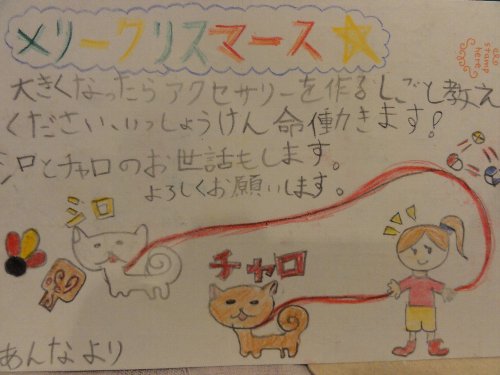 メリークリスマース
stamp here
大きくなったらアクセサリーを作るしごと教え
ください、いっしょうけん命働きます!
シロとチャロのお世話もします。
よろしくお願いします。
シロ
チャロ
あんなより